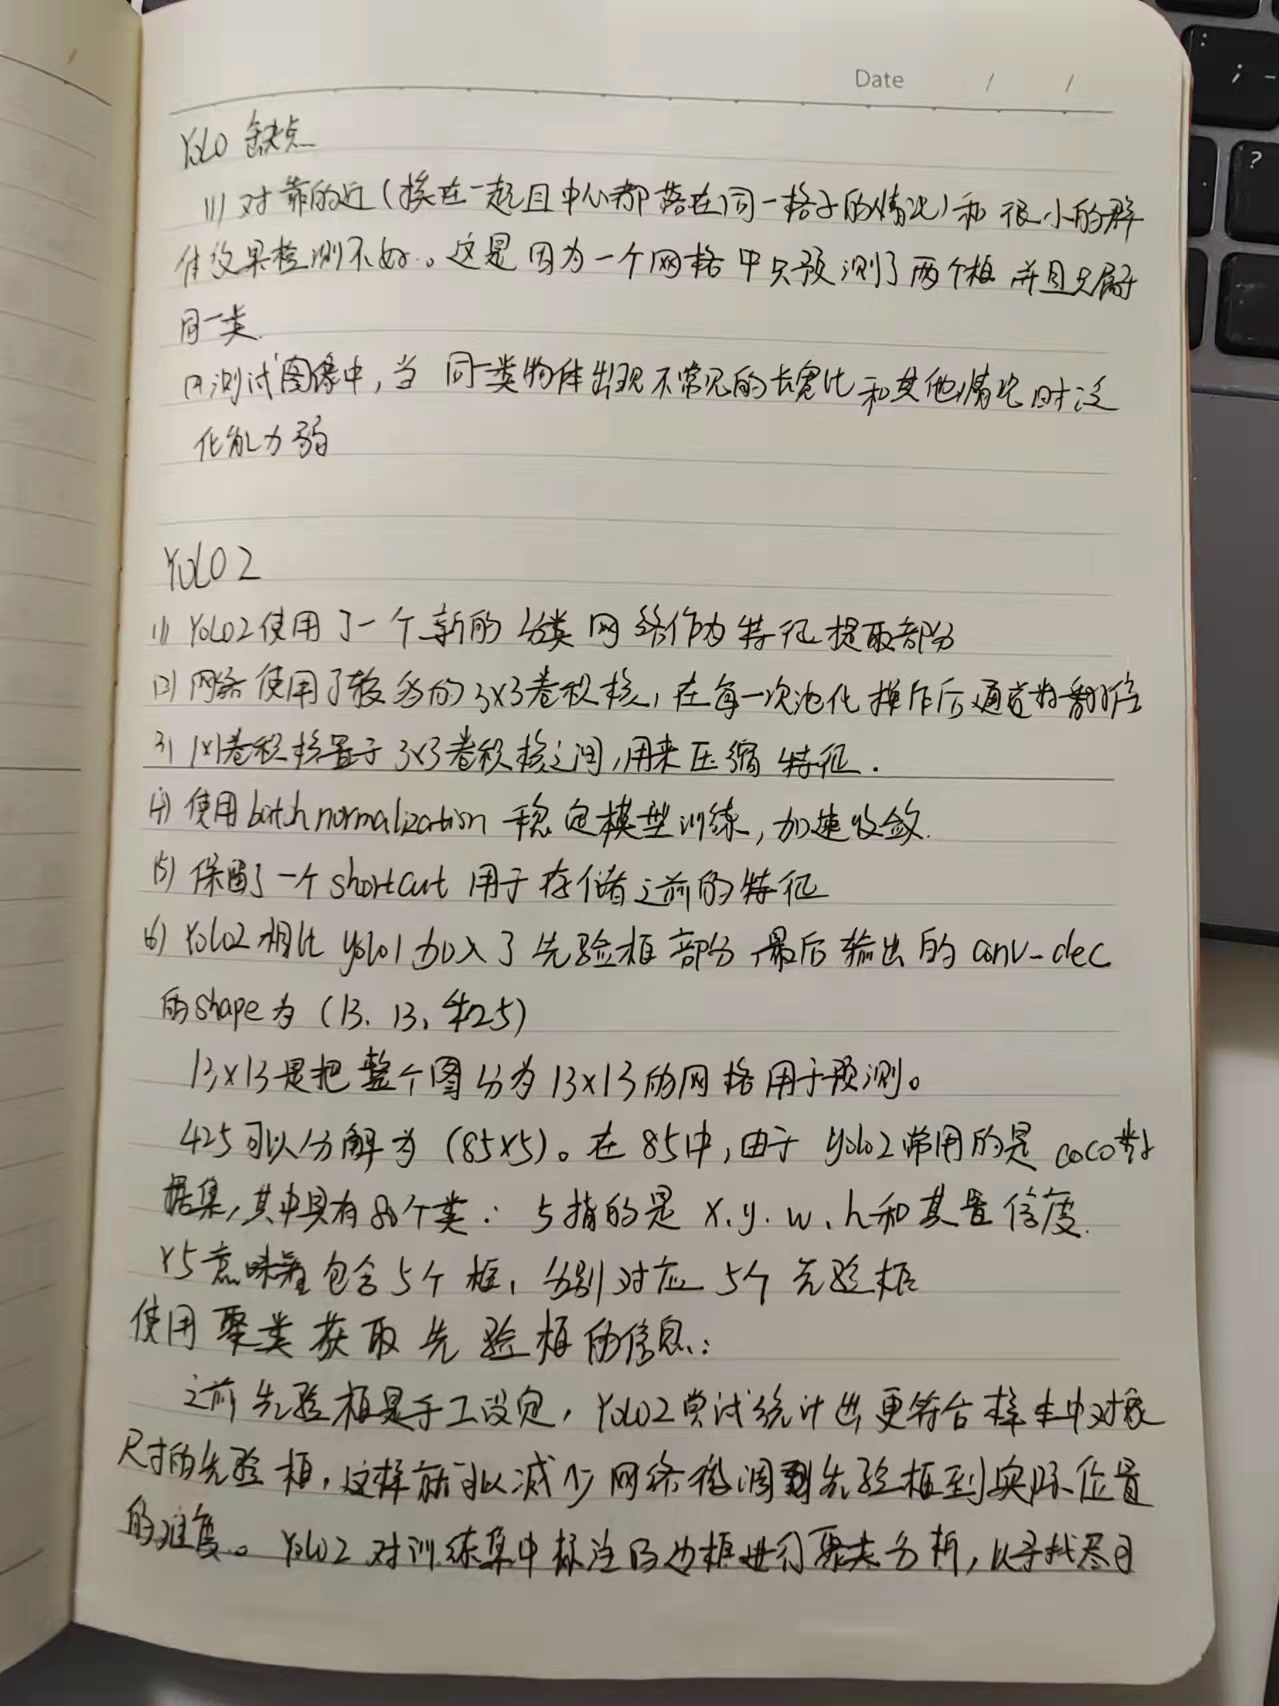 Date / /
YOLO 缺点
(1) 对靠的近(挨在一起且中心都落在同一格子的情况)和很小的群
体效果检测不好。这是因为一个网格中只预测了两个框并且只属于
同一类.
(2) 测试图像中,当同一类物体出现不常见的长宽比和其他情况时泛
化能力弱
YOLO 2
(1) YOLO2使用了一个新的分类网络作为特征提取部分
(2) 网络使用了较多的3×3卷积核,在每一次池化操作后通道数翻倍
3) 1×1卷积核置于3×3卷积核之间,用来压缩特征.
(4) 使用batch normalization 稳定模型训练,加速收敛.
(5) 保留了一个shortcut 用于存储之前的特征
(6) YOLO2相比yolo1加入了先验框部分,最后输出的conv_dec
的shape为 (13. 13, 425)
13×13是把整个图分为13×13的网格用于预测。
425可以分解为 (85×5)。在85中,由于yolo2常用的是coco数
据集,其中具有80个类; 5指的是 x. y. w. h和其置信度.
×5意味着包含5个框,分别对应5个先验框
使用聚类获取先验框的信息:
之前先验框是手工设定,YOLO2尝试统计出更符合样本中对象
尺寸的先验框,这样就可以减少网络微调到先验框到实际位置
的难度。YOLO2对训练集中标注的边框进行聚类分析,以寻找尽可